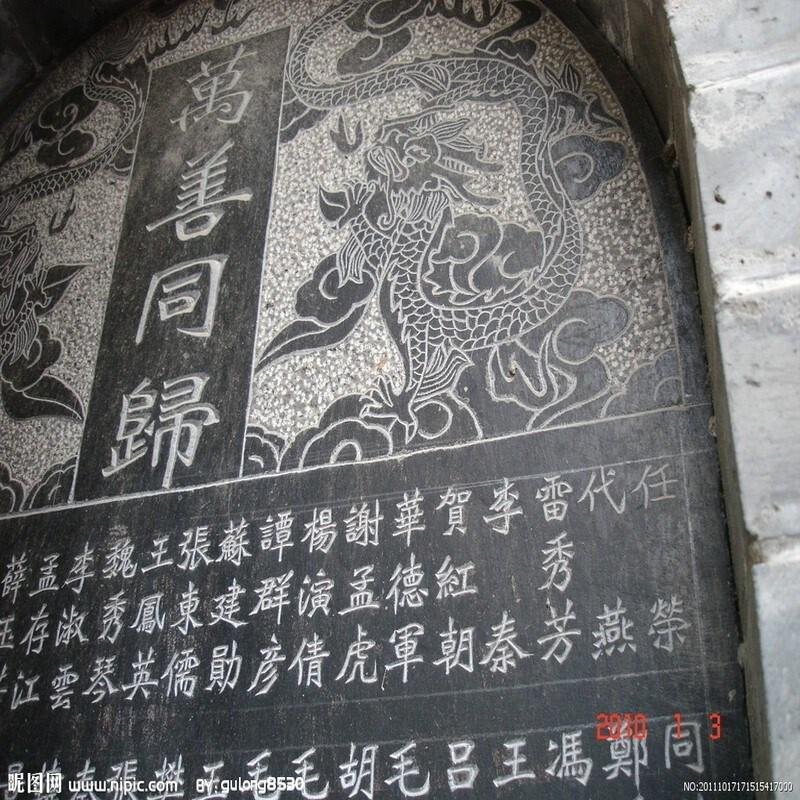 萬善同歸
任榮
代燕
雷秀芳
李秦
賀紅朝
華德軍
謝孟虎
楊演倩
譚群彥
蘇建勛
張東儒
王鳳英
魏秀琴
李淑雲
孟存江
薛玉
同
鄭
馮
王
呂
毛
胡
毛
毛
王
樊
張
秦
2010 1 3
昵图网 www.nipic.com BY:gulong8530
NO:20111017171515417000